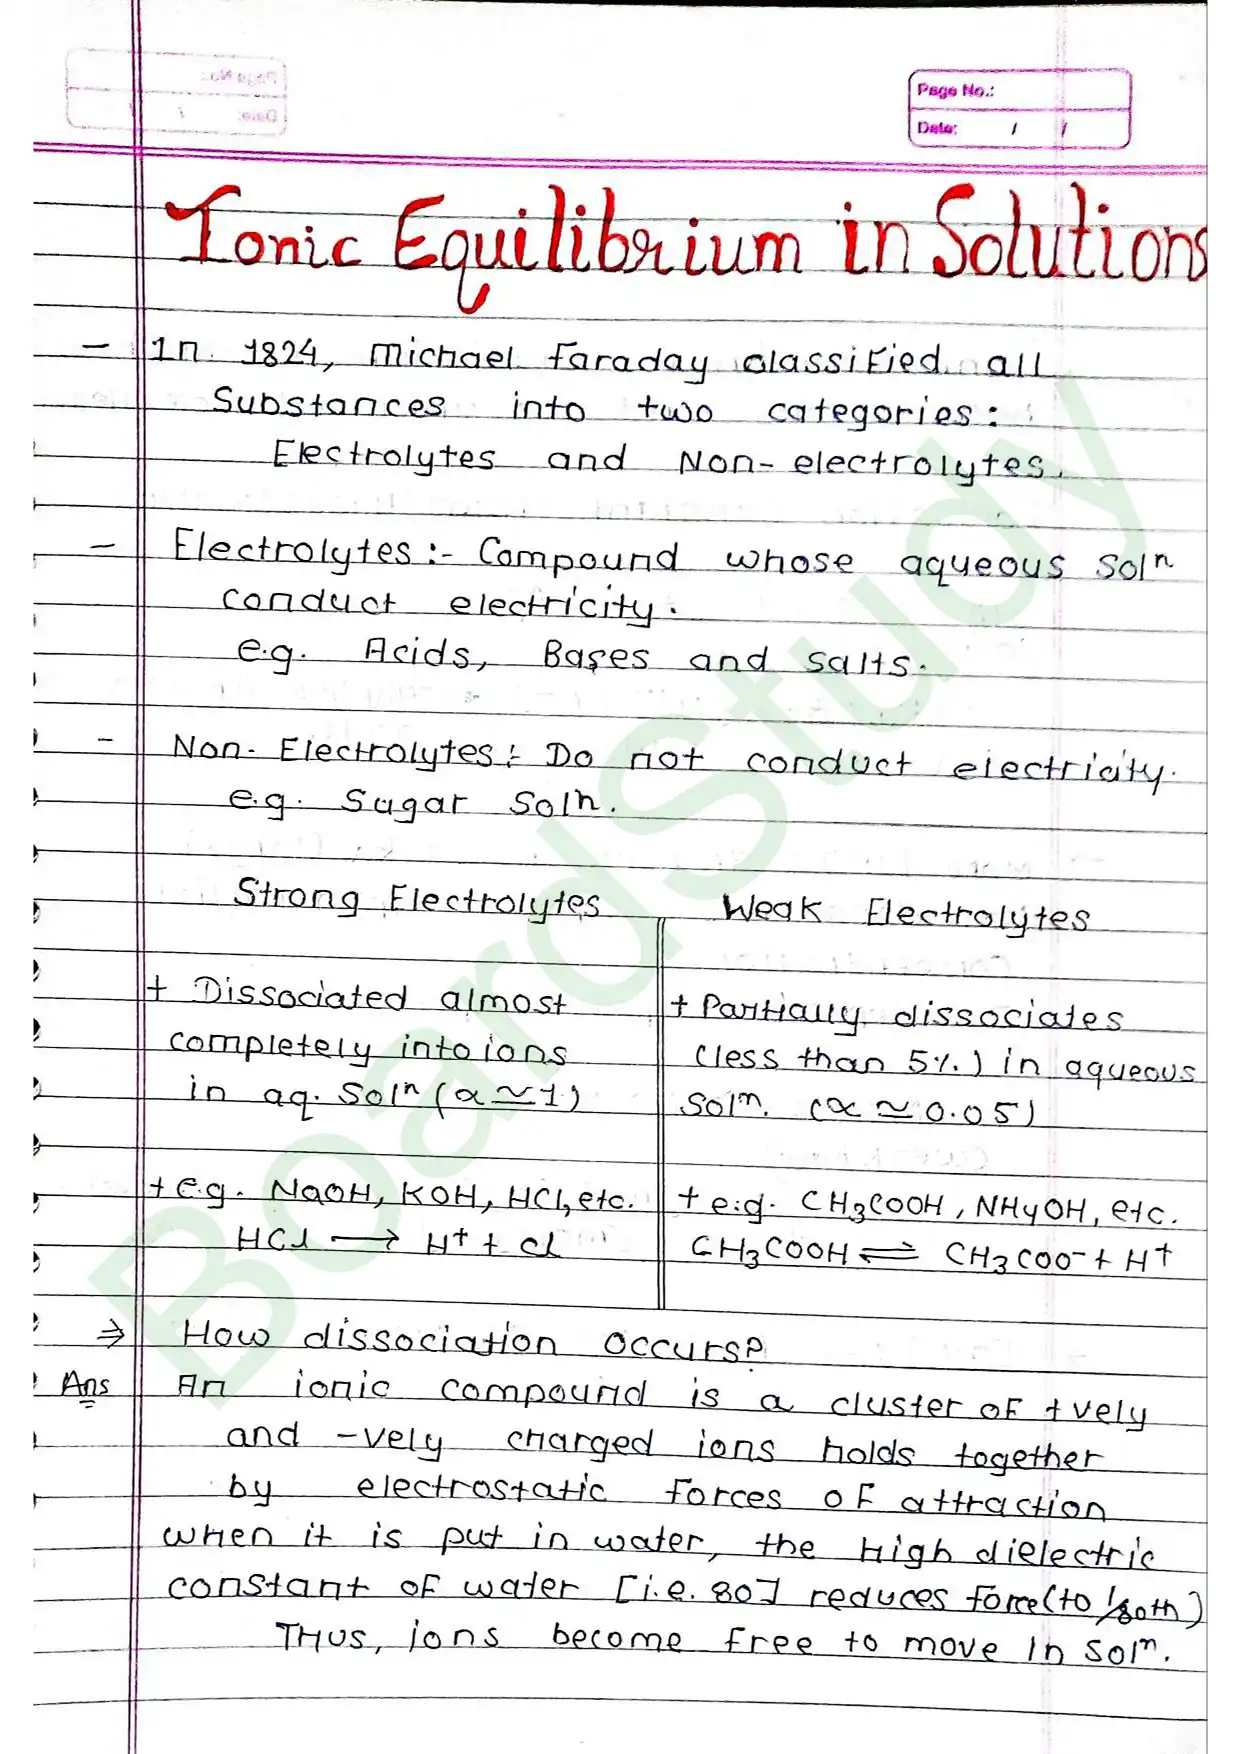 Page No.:
Date: / /
Ionic Equilibrium in Solutions
- In 1824, Michael faraday classified all
Substances into two categories:
Electrolytes and Non-electrolytes.
- Electrolytes:- Compound whose aqueous Solⁿ
conduct electricity.
e.g. Acids, Bases and salts.
- Non-Electrolytes:- Do not conduct electricity.
e.g. Sugar Solⁿ.
Strong Electrolytes
+ Dissociated almost
completely into ions
in aq. Solⁿ (α ≃ 1)
+ e.g. NaOH, KOH, HCl, etc.
HCl → H⁺ + Cl
Weak Electrolytes
+ Partially dissociates
(less than 5%.) in aqueous
Solⁿ. (α ≃ 0.05)
+ e.g. CH3COOH, NH4OH, etc.
CH3COOH ⇌ CH3COO⁻ + H⁺
⇒ How dissociation occurs?
Ans An ionic compound is a cluster of +vely
and -vely charged ions holds together
by electrostatic forces of attraction
when it is put in water, the High dielectric
constant of water [i.e. 80] reduces force (to 1/80th)
Thus, ions become free to move in Solⁿ.
BoardStudy